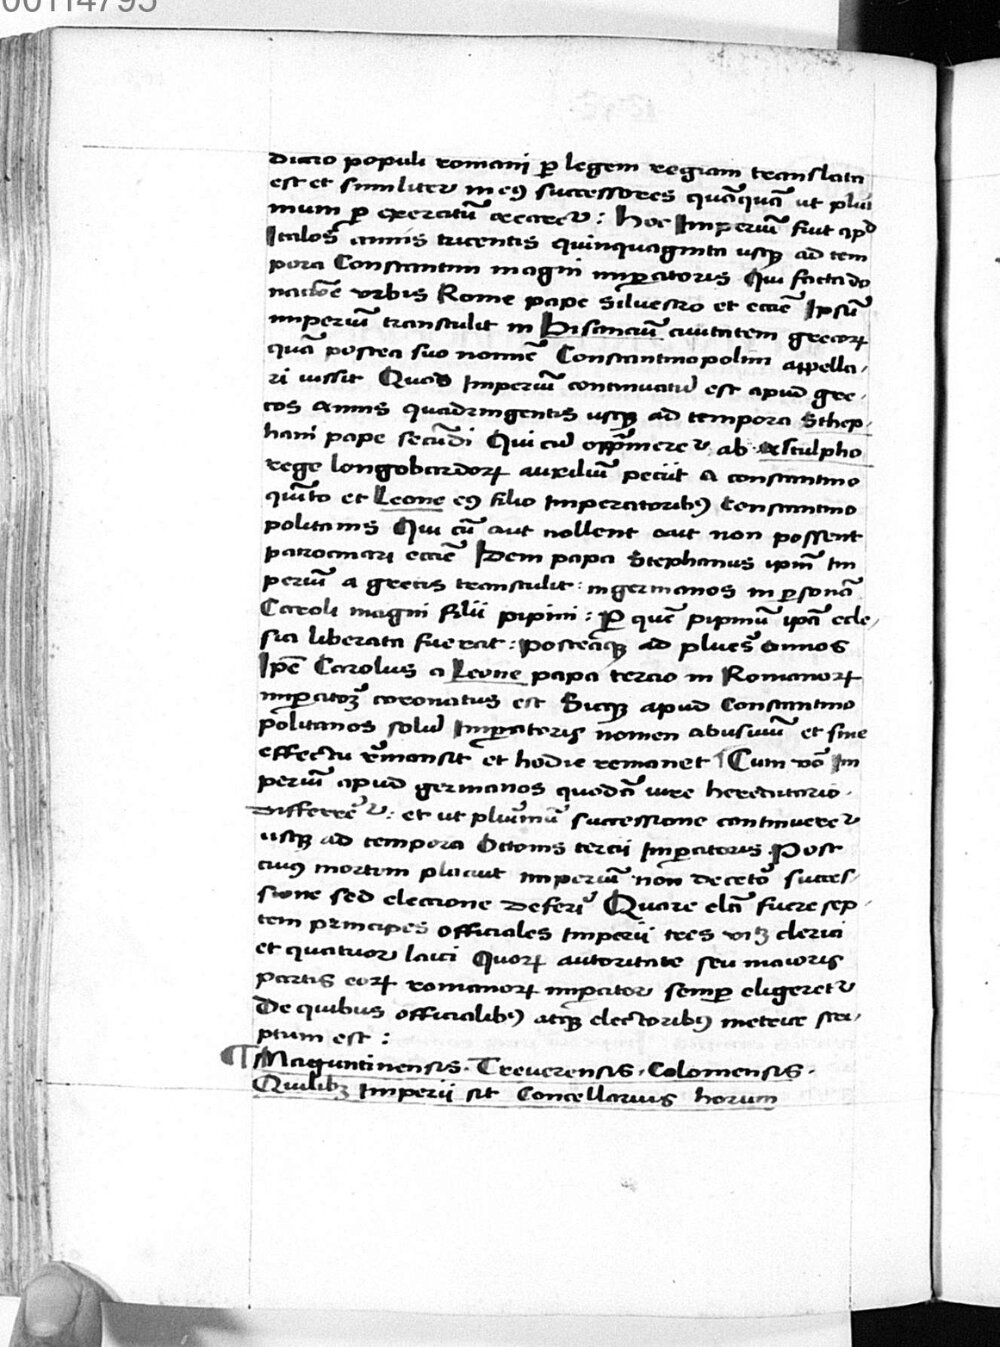 00114795
dictio populi romani ꝑ legem regiam translata
est et similiter in eiꝯ successores quāquā ut pluri
mum ꝑ exercitū crearetᷣ : Hoc Imperiū fuit apd
Italos annis tricentis quinquaginta usqꝫ ad tem
pora Constantini magni imꝑatoris Qui facta do
nacōe urbis Rome pape Siluestro et eccīe Ipsū
imperiū transtulit in Bisanciū ciuitatem grecoꝝ
quā postea suo nomīe Constantinopolim appella
ri iussit Quod Imperiū continuatū est apud gre
cos Annis quadringentis usqꝫ ad tempora Sthep
hani pape secūdi Qui cū opp̄meretᷣ ab Astulpho
rege longobardoꝝ auxiliū peciit a constantino
quīto et Leone eiꝯ filio Imperatoribꝯ Constantino
politanis Qui cū aut nollent aut non possent
patrocinari eccīe Idem papa Stephanus ipm̄ Im
periū a grecis transtulit : in germanos in ꝑsonā
Caroli magni filii pipini : ꝑ quē pipinū ipā eccle
sia liberata fuerat : posteaqꝫ ad plures annos
Ipē Carolus a Leone papa tercio in Romanoꝝ
imꝑatorē coronatus est Sicqꝫ apud Constantino
politanos solū Imꝑatoris nomen abusiuū et sine
effectu rēmansit et hodie remanet Cum vō Im
periū apud germanos quodā iure hereditario
differretᷣ : et ut plurimū successione continueretᷣ
usqꝫ ad tempora Ottonis tercii Imꝑatoris Post
cuiꝯ mortem placuit imperiū non deceto succes
sione sed eleccione deferri Quare elcī fuere sep
tem principes officiales Imperii tres vitꝫ clerici
et quatuor laici Quoꝝ autoritate seu maioris
partis eoꝝ romanoꝝ imꝑator semꝑ eligeretᷣ
De quibus officialibꝯ atqꝫ electoribꝯ metrice scri
ptum est :
¶ Maguntinensis . Treuerensis . Coloniensis .
Quilibꝫ Imperii sit Cancellarius horum